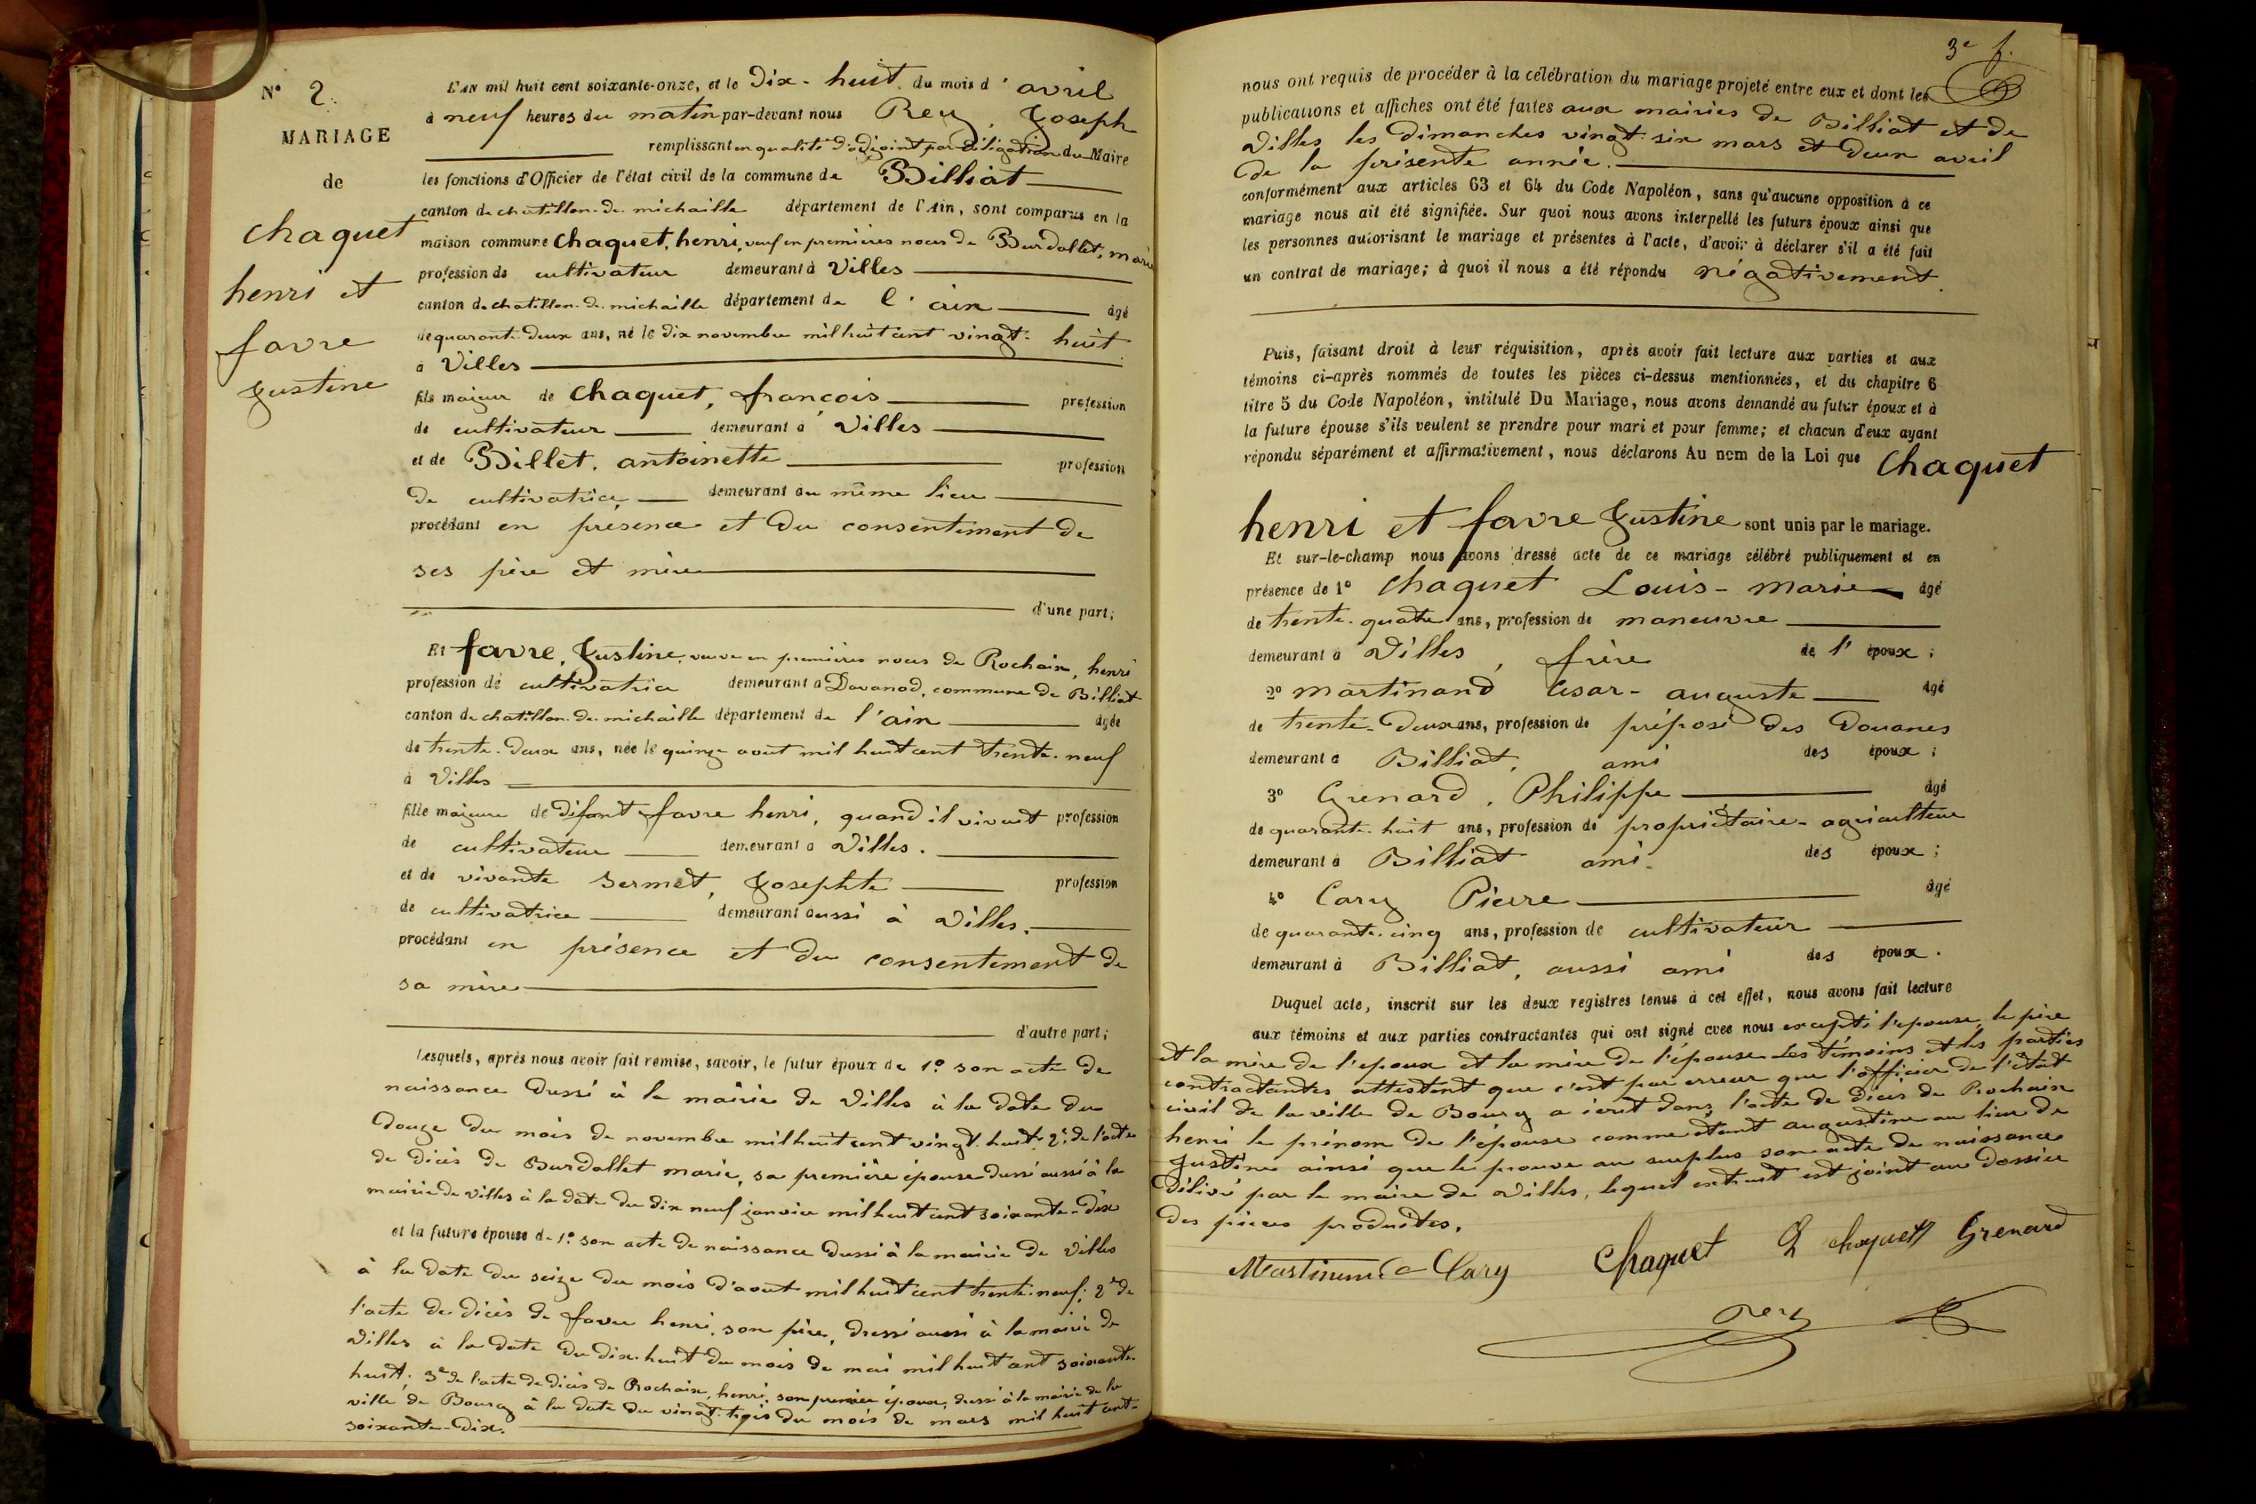 N° 2.
MARIAGE
de
Chaquet
henri et
favre
Justine
L'AN mil huit cent soixante-onze, et le Dix-huit du mois d'avril
à neuf heures du matin par-devant nous Rey, Joseph
remplissant en qualité d'adjoint par déligation du Maire
les fonctions d'Officier de l'état civil de la commune de Billiat
canton de chatillon-de-michaille département de l'Ain, sont comparus en la
maison commune Chaquet, henri, veuf en premières noces de Burdallet, marie
profession de cultivateur demeurant à Villes
canton de chatillon-de-michaille département de l'ain âgé
de quarante-deux ans, né le dix novembre mil huit cent vingt-huit
à Villes
fils majeur de Chaquet, françois profession
de cultivateur demeurant à Villes
et de Billet, antoinette profession
de cultivatrice demeurant au même lieu
procédant en présence et du consentement de
ses père et mère
d'une part;
Et favre, Justine, veuve en premières noces de Rochaix, henri
profession de cultivatrice demeurant à Davanod, commune de Billiat
canton de chatillon-de-michaille département de l'ain âgée
de trente-deux ans, née le quinze aout mil huit cent trente-neuf
à Villes
fille majeure de défunt favre henri, quand il vivait profession
de cultivateur demeurant à Villes.
et de vivante Sermet, Josephte profession
de cultivatrice demeurant aussi à Villes.
procédant en présence et du consentement de
sa mère
d'autre part;
Lesquels, après nous avoir fait remise, savoir, le futur époux de 1° son acte de
naissance dressé à la mairie de Villes à la date du
douze du mois de novembre mil huit cent vingt-huit 2° de l'acte
de décès de Burdallet marie, sa première épouse dressé aussi à la
mairie de Villes à la date du dix neuf janvier mil huit cent soixante-dix
et la future épouse de 1° son acte de naissance dressé à la mairie de Villes
à la date du seize du mois d'aout mil huit cent trente-neuf; 2° de
l'acte de décès de favre henri, son père, dressé aussi à la mairie de
Villes à la date du dix-huit du mois de mai mil huit cent soixante-
huit; 3° de l'acte de décès de Rochaix, henri, son premier époux, dressé à la mairie de la
ville de Bourg à la date du vingt-trois du mois de mars mil huit cent-
soixante-dix.
3e f.
nous ont requis de procéder à la célébration du mariage projeté entre eux et dont les
publications et affiches ont été faites aux mairies de Billiat et de
Villes les dimanches vingt-six mars et deux avril
de la présente année.
conformément aux articles 63 et 64 du Code Napoléon, sans qu'aucune opposition à ce
mariage nous ait été signifiée. Sur quoi nous avons interpellé les futurs époux ainsi que
les personnes autorisant le mariage et présentes à l'acte, d'avoir à déclarer s'il a été fait
un contrat de mariage; à quoi il nous a été répondu négativement.
Puis, faisant droit à leur réquisition, après avoir fait lecture aux parties et aux
témoins ci-après nommés de toutes les pièces ci-dessus mentionnées, et du chapitre 6
titre 5 du Code Napoléon, intitulé Du Mariage, nous avons demandé au futur époux et à
la future épouse s'ils veulent se prendre pour mari et pour femme; et chacun d'eux ayant
répondu séparément et affirmativement, nous déclarons Au nom de la Loi que Chaquet
henri et favre Justine sont unis par le mariage.
Et sur-le-champ nous avons dressé acte de ce mariage célébré publiquement et en
présence de 1° Chaquet Louis-marie âgé
de trente-quatre ans, profession de manœuvre
demeurant à Villes, frère de l'époux;
2° martinand César-auguste âgé
de trente-deux ans, profession de préposé des Douanes
demeurant à Billiat, ami des époux;
3° Grenard, Philippe âgé
de quarante-huit ans, profession de propriétaire-agriculteur
demeurant à Billiat ami des époux;
4° Cary Pierre âgé
de quarante-cinq ans, profession de cultivateur
demeurant à Billiat, aussi ami des époux.
Duquel acte, inscrit sur les deux registres tenus à cet effet, nous avons fait lecture
aux témoins et aux parties contractantes qui ont signé avec nous excepté l'epouse, le père
et la mère de l'epoux et la mère de l'épouse. Les témoins et les parties
contractantes attestent que c'est par erreur que l'officier de l'état
civil de la ville de Bourg a écrit dans l'acte de décès de Rochaix
henri le prénom de l'épouse comme étant augustine au lieu de
Justine ainsi que le prouve au surplus son acte de naissance
délivré par le maire de Villes, lequel extrait est joint au dossier
des pièces produites.
Martinand Cary Chaquet L chaquet Grenard
Rey